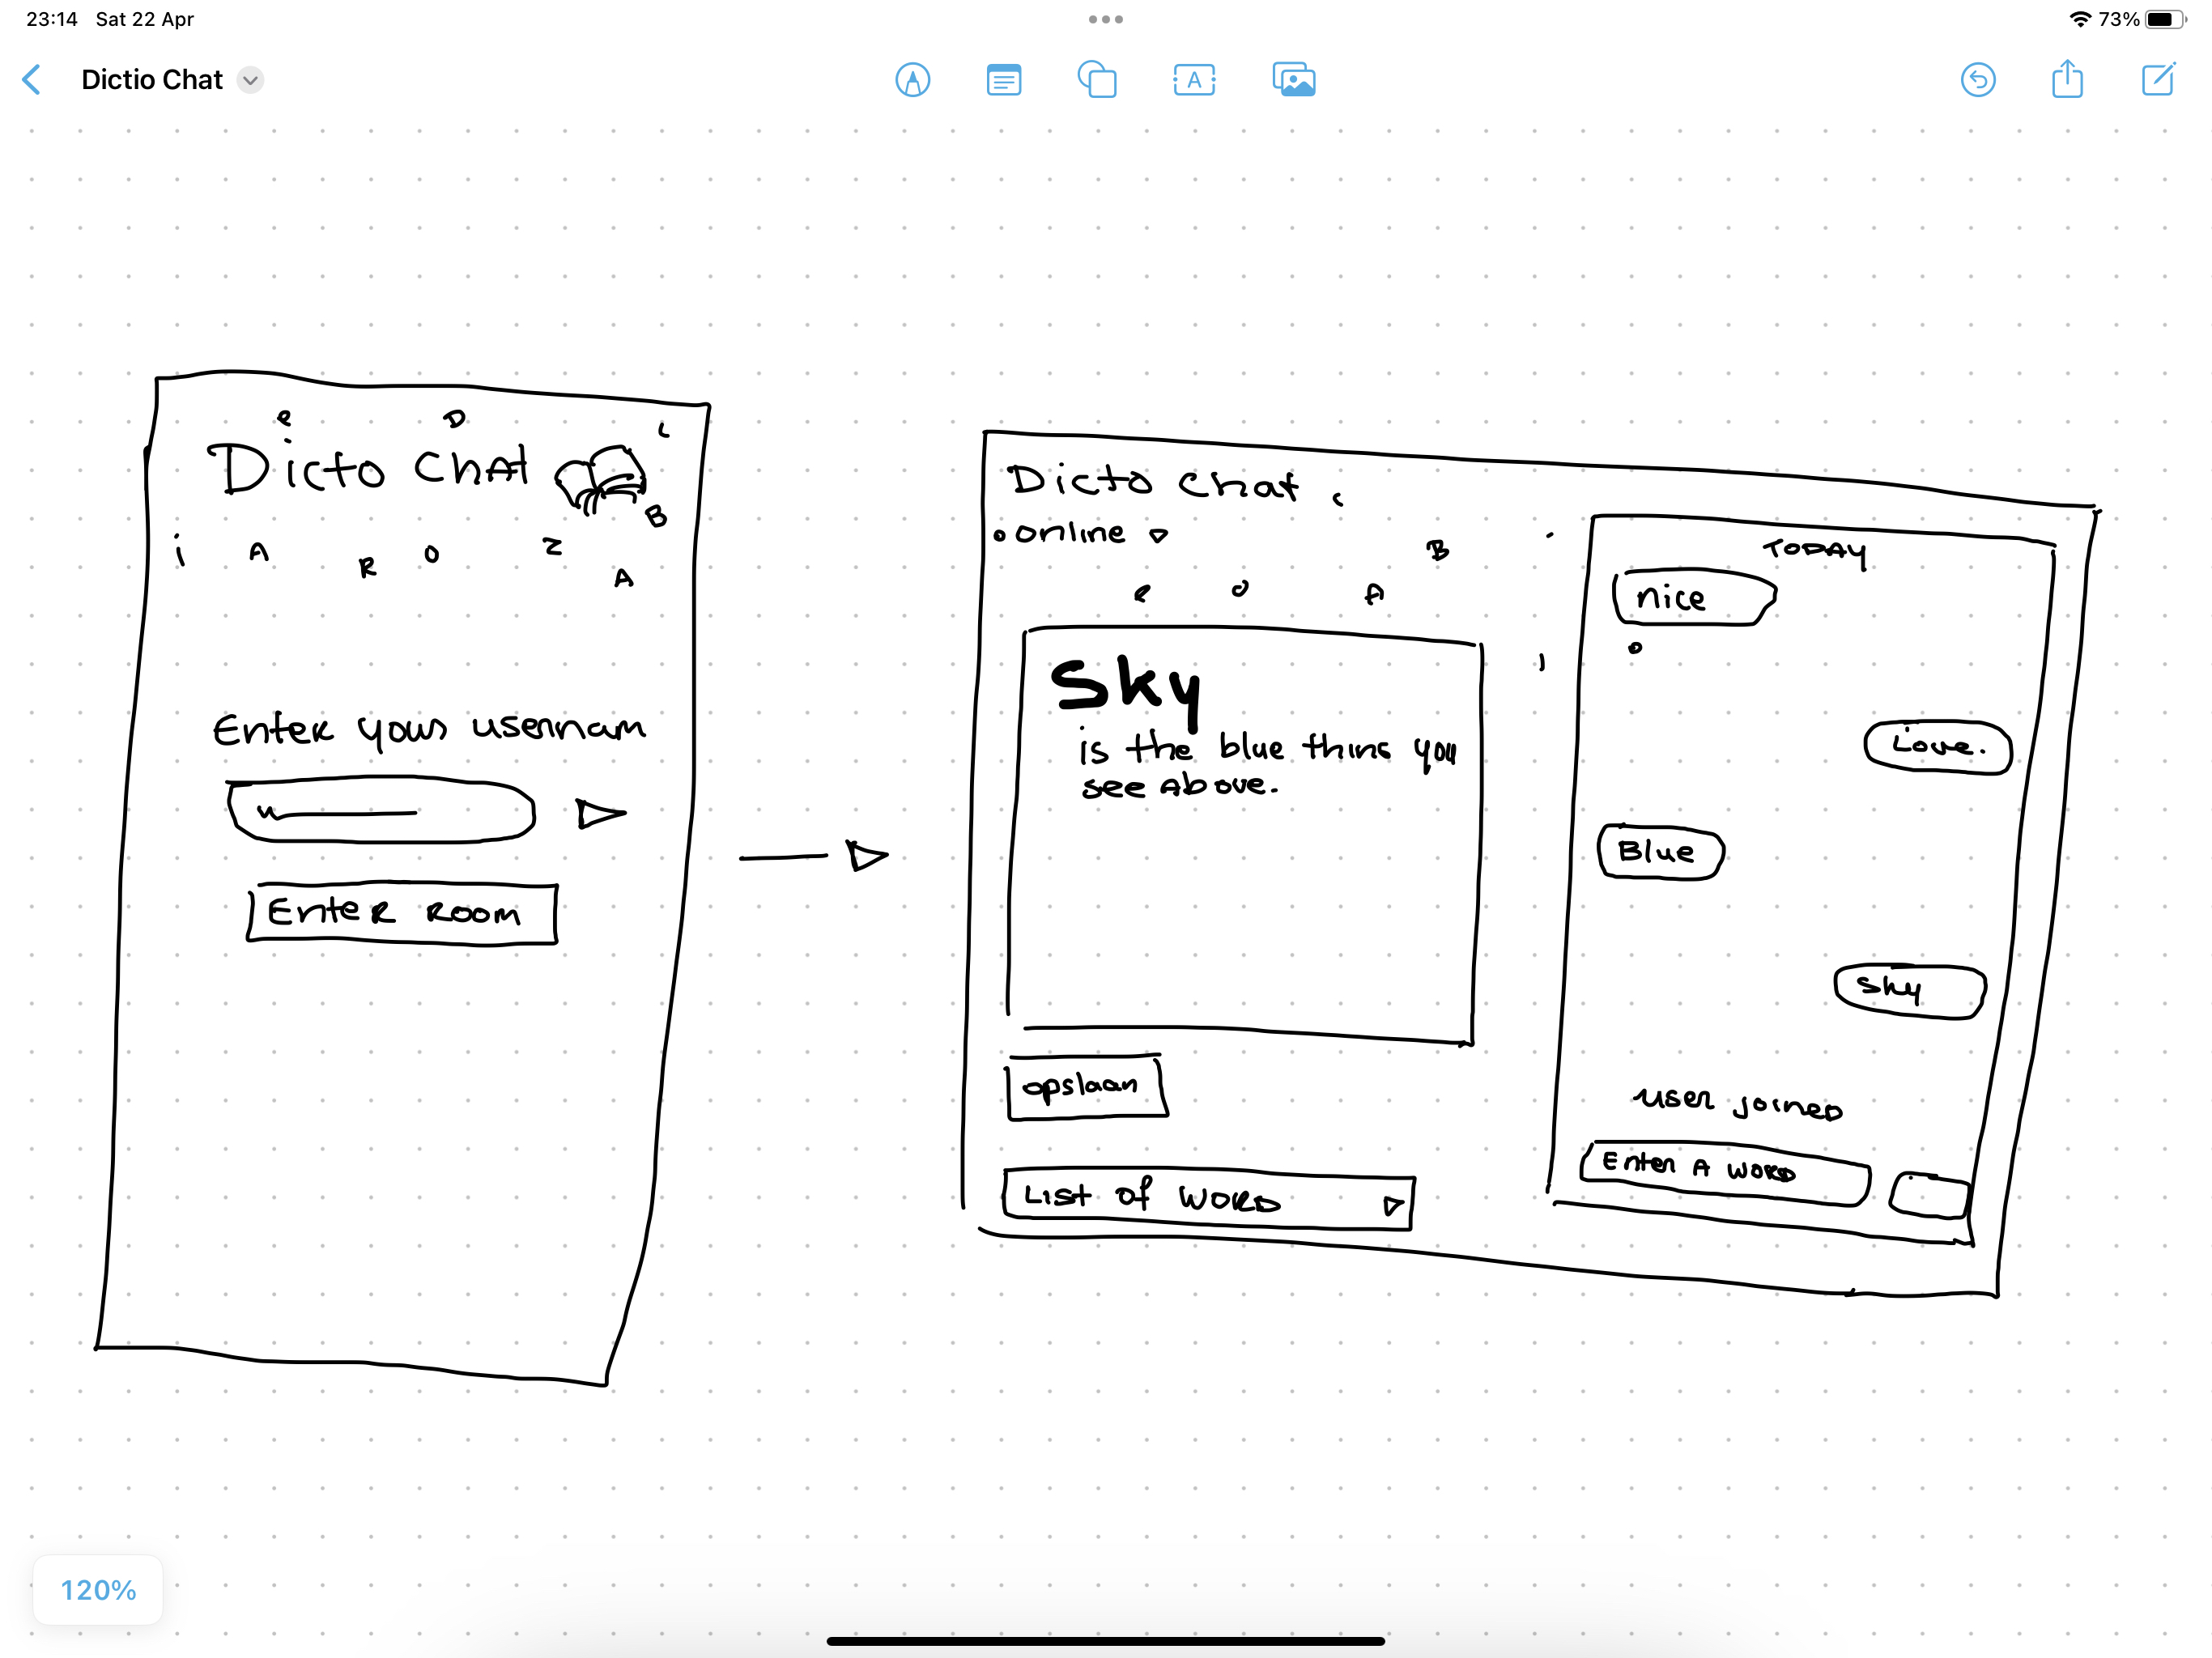 23:14 Sat 22 Apr
73%
Dictio Chat
A
e D L
Dicto Chat
B
i A R O Z A
Enter your usernam
Enter Room
Dicto chat c
online
B
e o A
Sky
is the blue thing you
see Above.
opslaan
List of WORD
TODAY
nice
Love.
Blue
Sky
user joined
Enter A WORD
120%